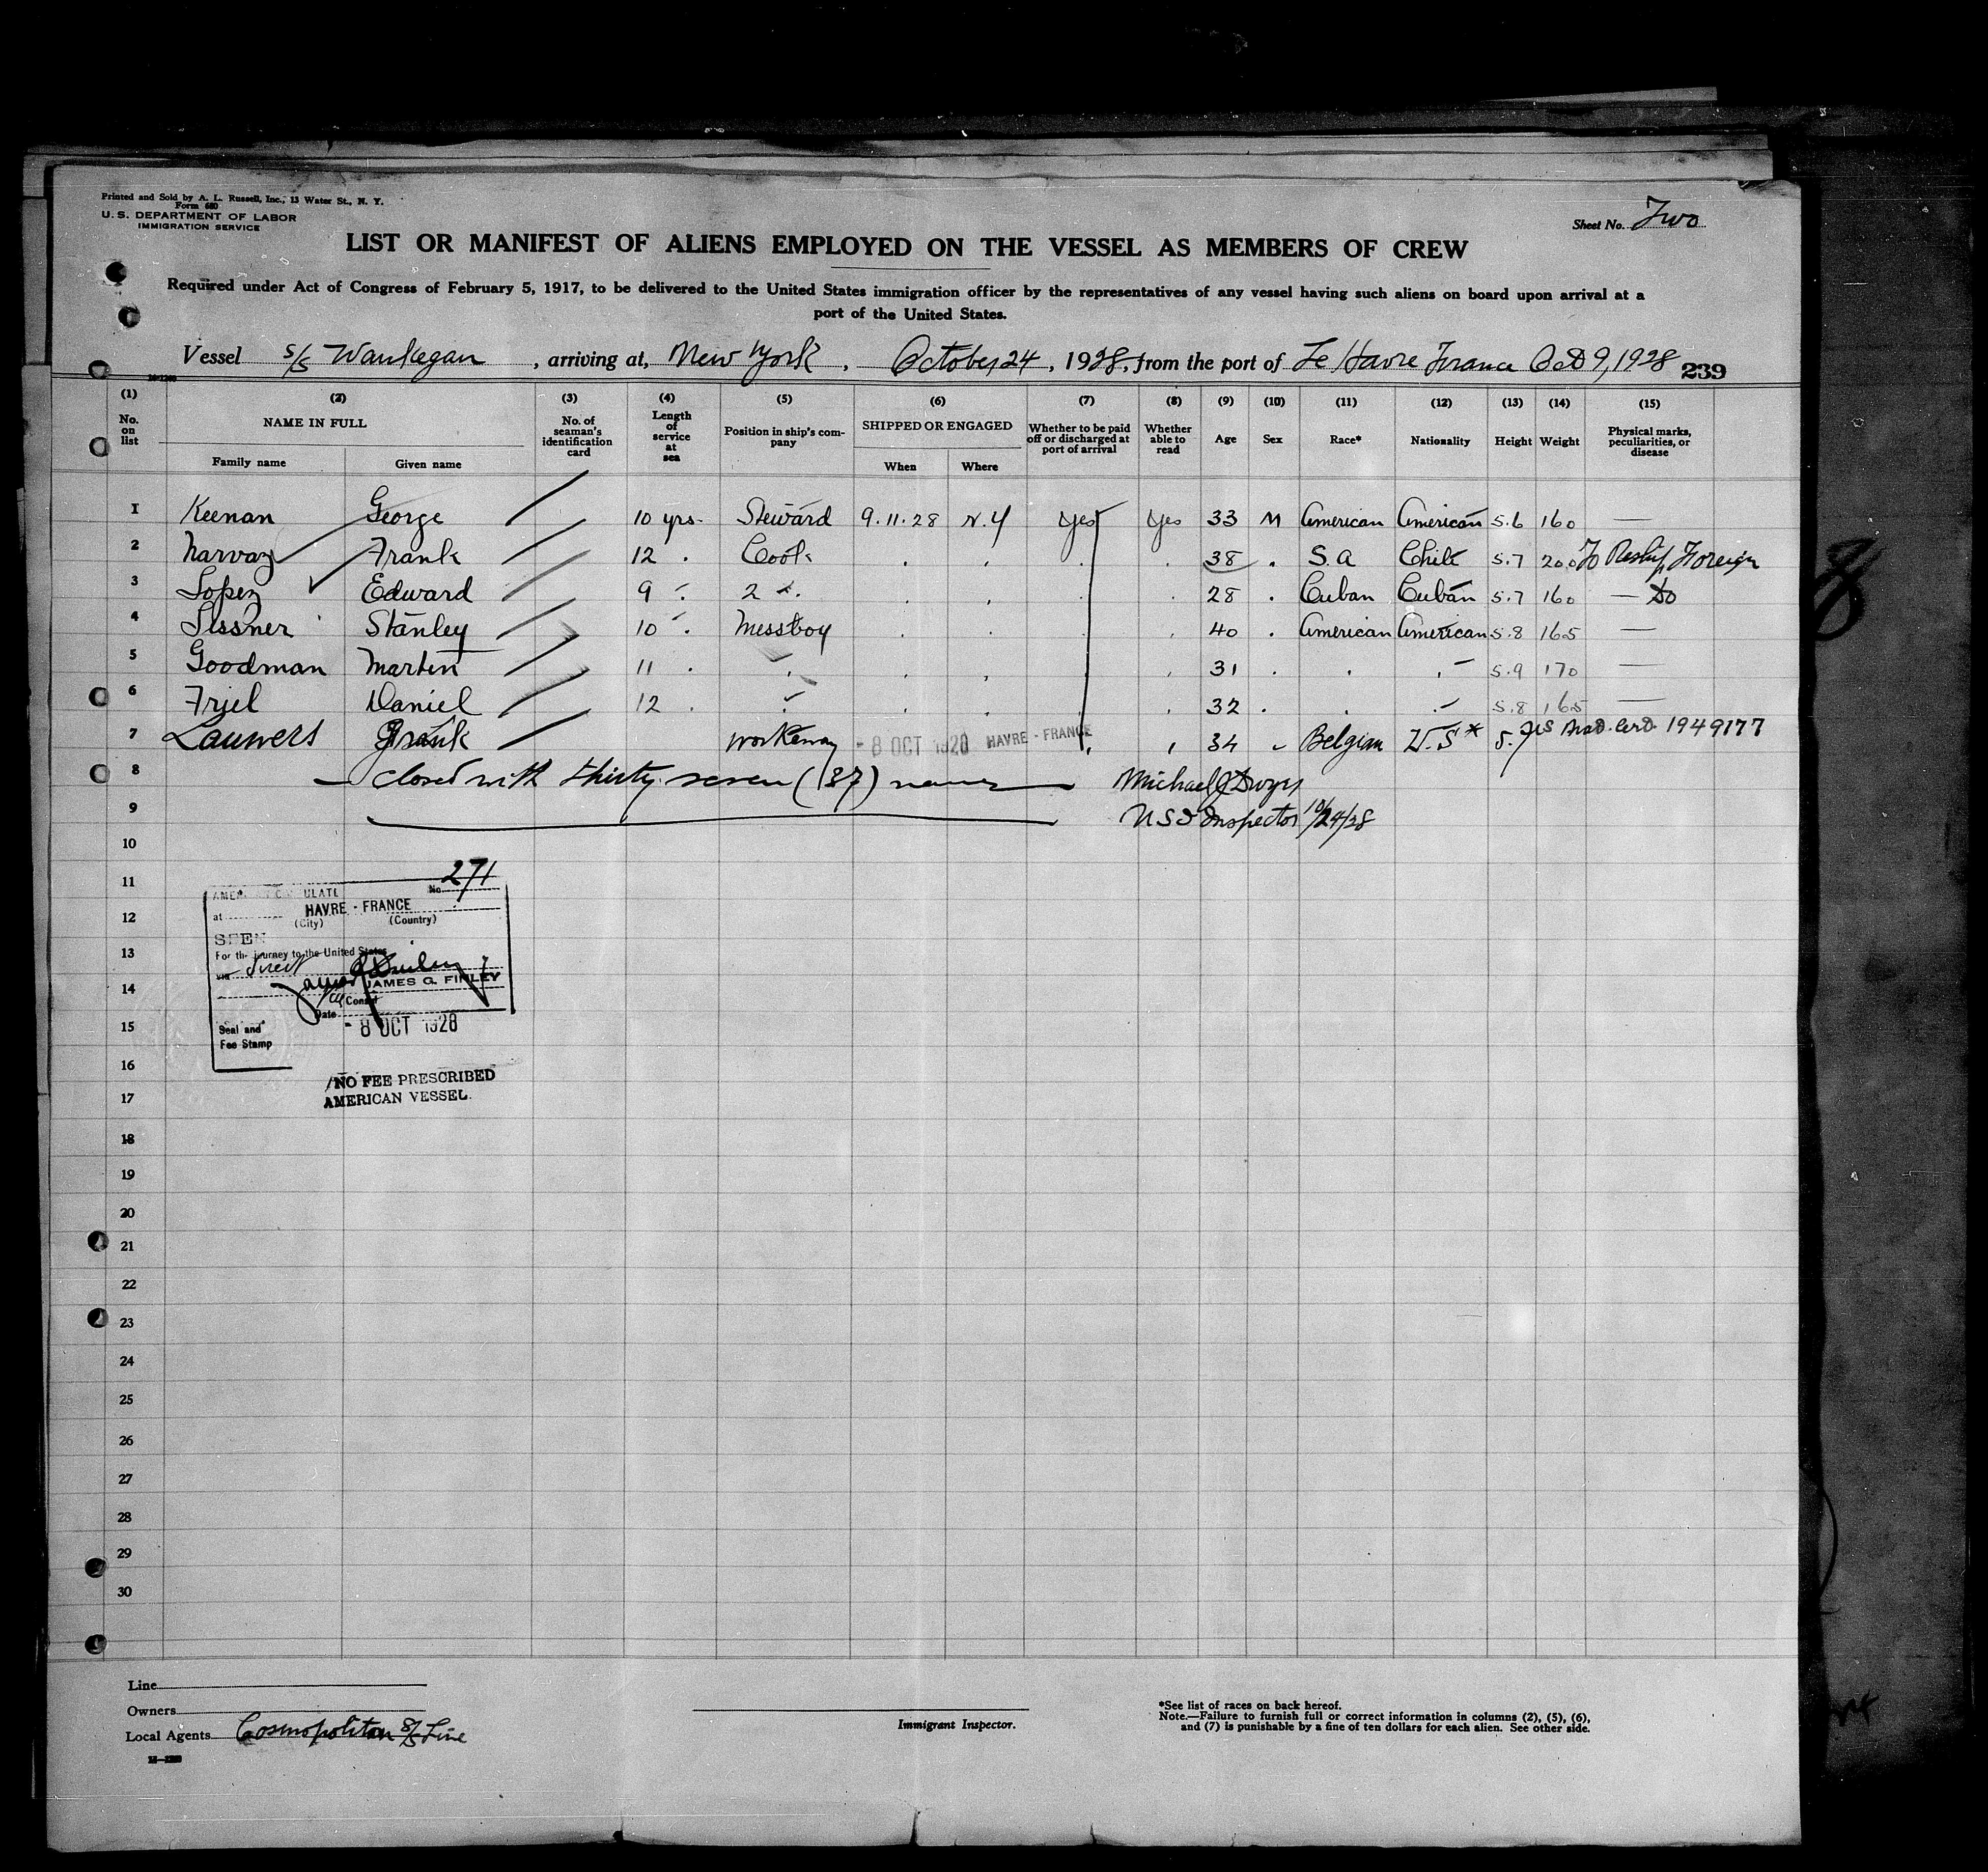 Printed and Sold by A. L. Russell, Inc., 13 Water St., N. Y.
Form 680
U. S. DEPARTMENT OF LABOR
IMMIGRATION SERVICE
Sheet No. Two
LIST OR MANIFEST OF ALIENS EMPLOYED ON THE VESSEL AS MEMBERS OF CREW
Required under Act of Congress of February 5, 1917, to be delivered to the United States immigration officer by the representatives of any vessel having such aliens on board upon arrival at a
port of the United States.
Vessel S/S Waukegan, arriving at, New York, October 24, 1928, from the port of Le Havre France Oct 9, 1928 239
(1) (2) (3) (4) (5) (6) (7) (8) (9) (10) (11) (12) (13) (14) (15)
No. on list
NAME IN FULL
Family name
Given name
No. of seaman's identification card
Length of service at sea
Position in ship's company
SHIPPED OR ENGAGED
When
Where
Whether to be paid off or discharged at port of arrival
Whether able to read
Age
Sex
Race*
Nationality
Height
Weight
Physical marks, peculiarities, or disease
1 Keenan George 10 yrs. Steward 9.11.28 N.Y Yes Yes 33 M American American 5.6 160 —
2 Narvaz Frank 12 . Cook . . . . 38 . S.A Chile 5.7 200 To Reship Foreign
3 Lopez Edward 9 . 2 . . . . . 28 . Cuban Cuban 5.7 160 — Do
4 Lissner Stanley 10 . Messboy . . . . 40 . American American 5.8 165 —
5 Goodman Martin 11 . . . . . . 31 . . . 5.9 170 —
6 Friel Daniel 12 . . . . . . 32 . . . 5.8 165 —
7 Lauwers Frank workaway - 8 OCT 1928 HAVRE - FRANCE 34 Belgian U.S* 5.7 1949177
8 — closed with thirty seven (37) names — Michael J Dwyer
9 Inspector 10/24/28
10
11
12
13
14
15
16
17
18
19
20
21
22
23
24
25
26
27
28
29
30
No. 271
at HAVRE - FRANCE
(City) (Country)
SEEN
For the journey to the United States
via direct
JAMES G. FINLEY
Consul
Date - 8 OCT 1928
Seal and
Fee Stamp
NO FEE PRESCRIBED
AMERICAN VESSEL.
Line
Owners
Local Agents Cosmopolitan S/S Line
Immigrant Inspector.
*See list of races on back hereof.
Note.—Failure to furnish full or correct information in columns (2), (5), (6),
and (7) is punishable by a fine of ten dollars for each alien. See other side.